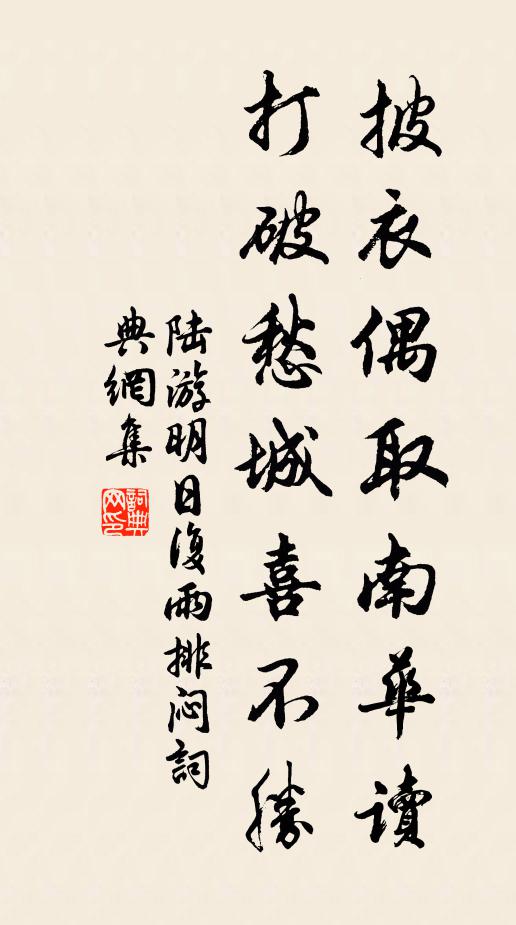 披衣偶取南華讀
打破愁城喜不勝
陆游明日復雨排闷詞
典網集
詞典網印